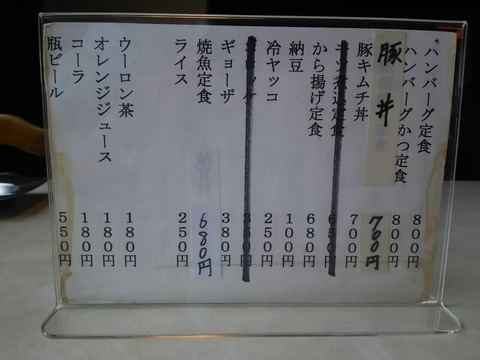 ハンバーグ定食 800円
ハンバーグかつ定食 800円
豚丼 700円
豚キムチ丼 700円
煮込定食 650円
から揚げ定食 680円
納豆 100円
冷ヤッコ 250円
ギョーザ 380円
焼魚定食 納豆付 680円
ライス 250円
ウーロン茶 180円
オレンジジュース 180円
コーラ 180円
瓶ビール 550円